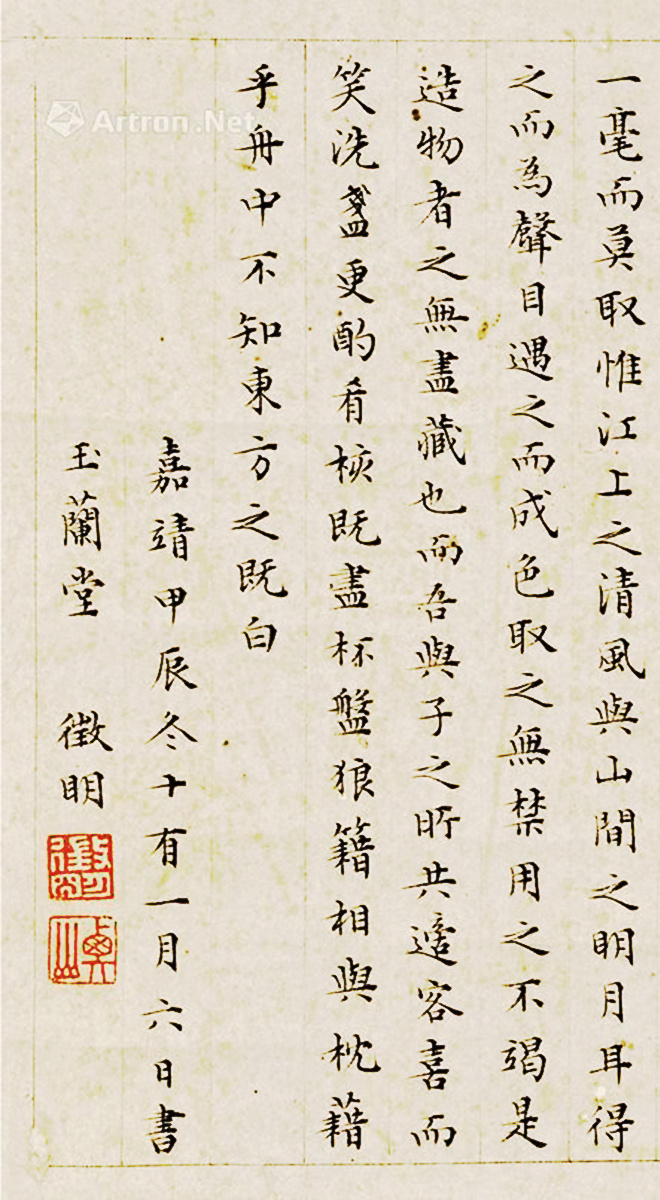 一毫而莫取惟江上之清風與山間之明月耳得
之而為聲目遇之而成色取之無禁用之不竭是
造物者之無盡藏也而吾與子之所共適客喜而
笑洗盞更酌肴核既盡杯盤狼籍相與枕藉
乎舟中不知東方之既白
嘉靖甲辰冬十有一月六日書
玉蘭堂 徵明
Artron.Net